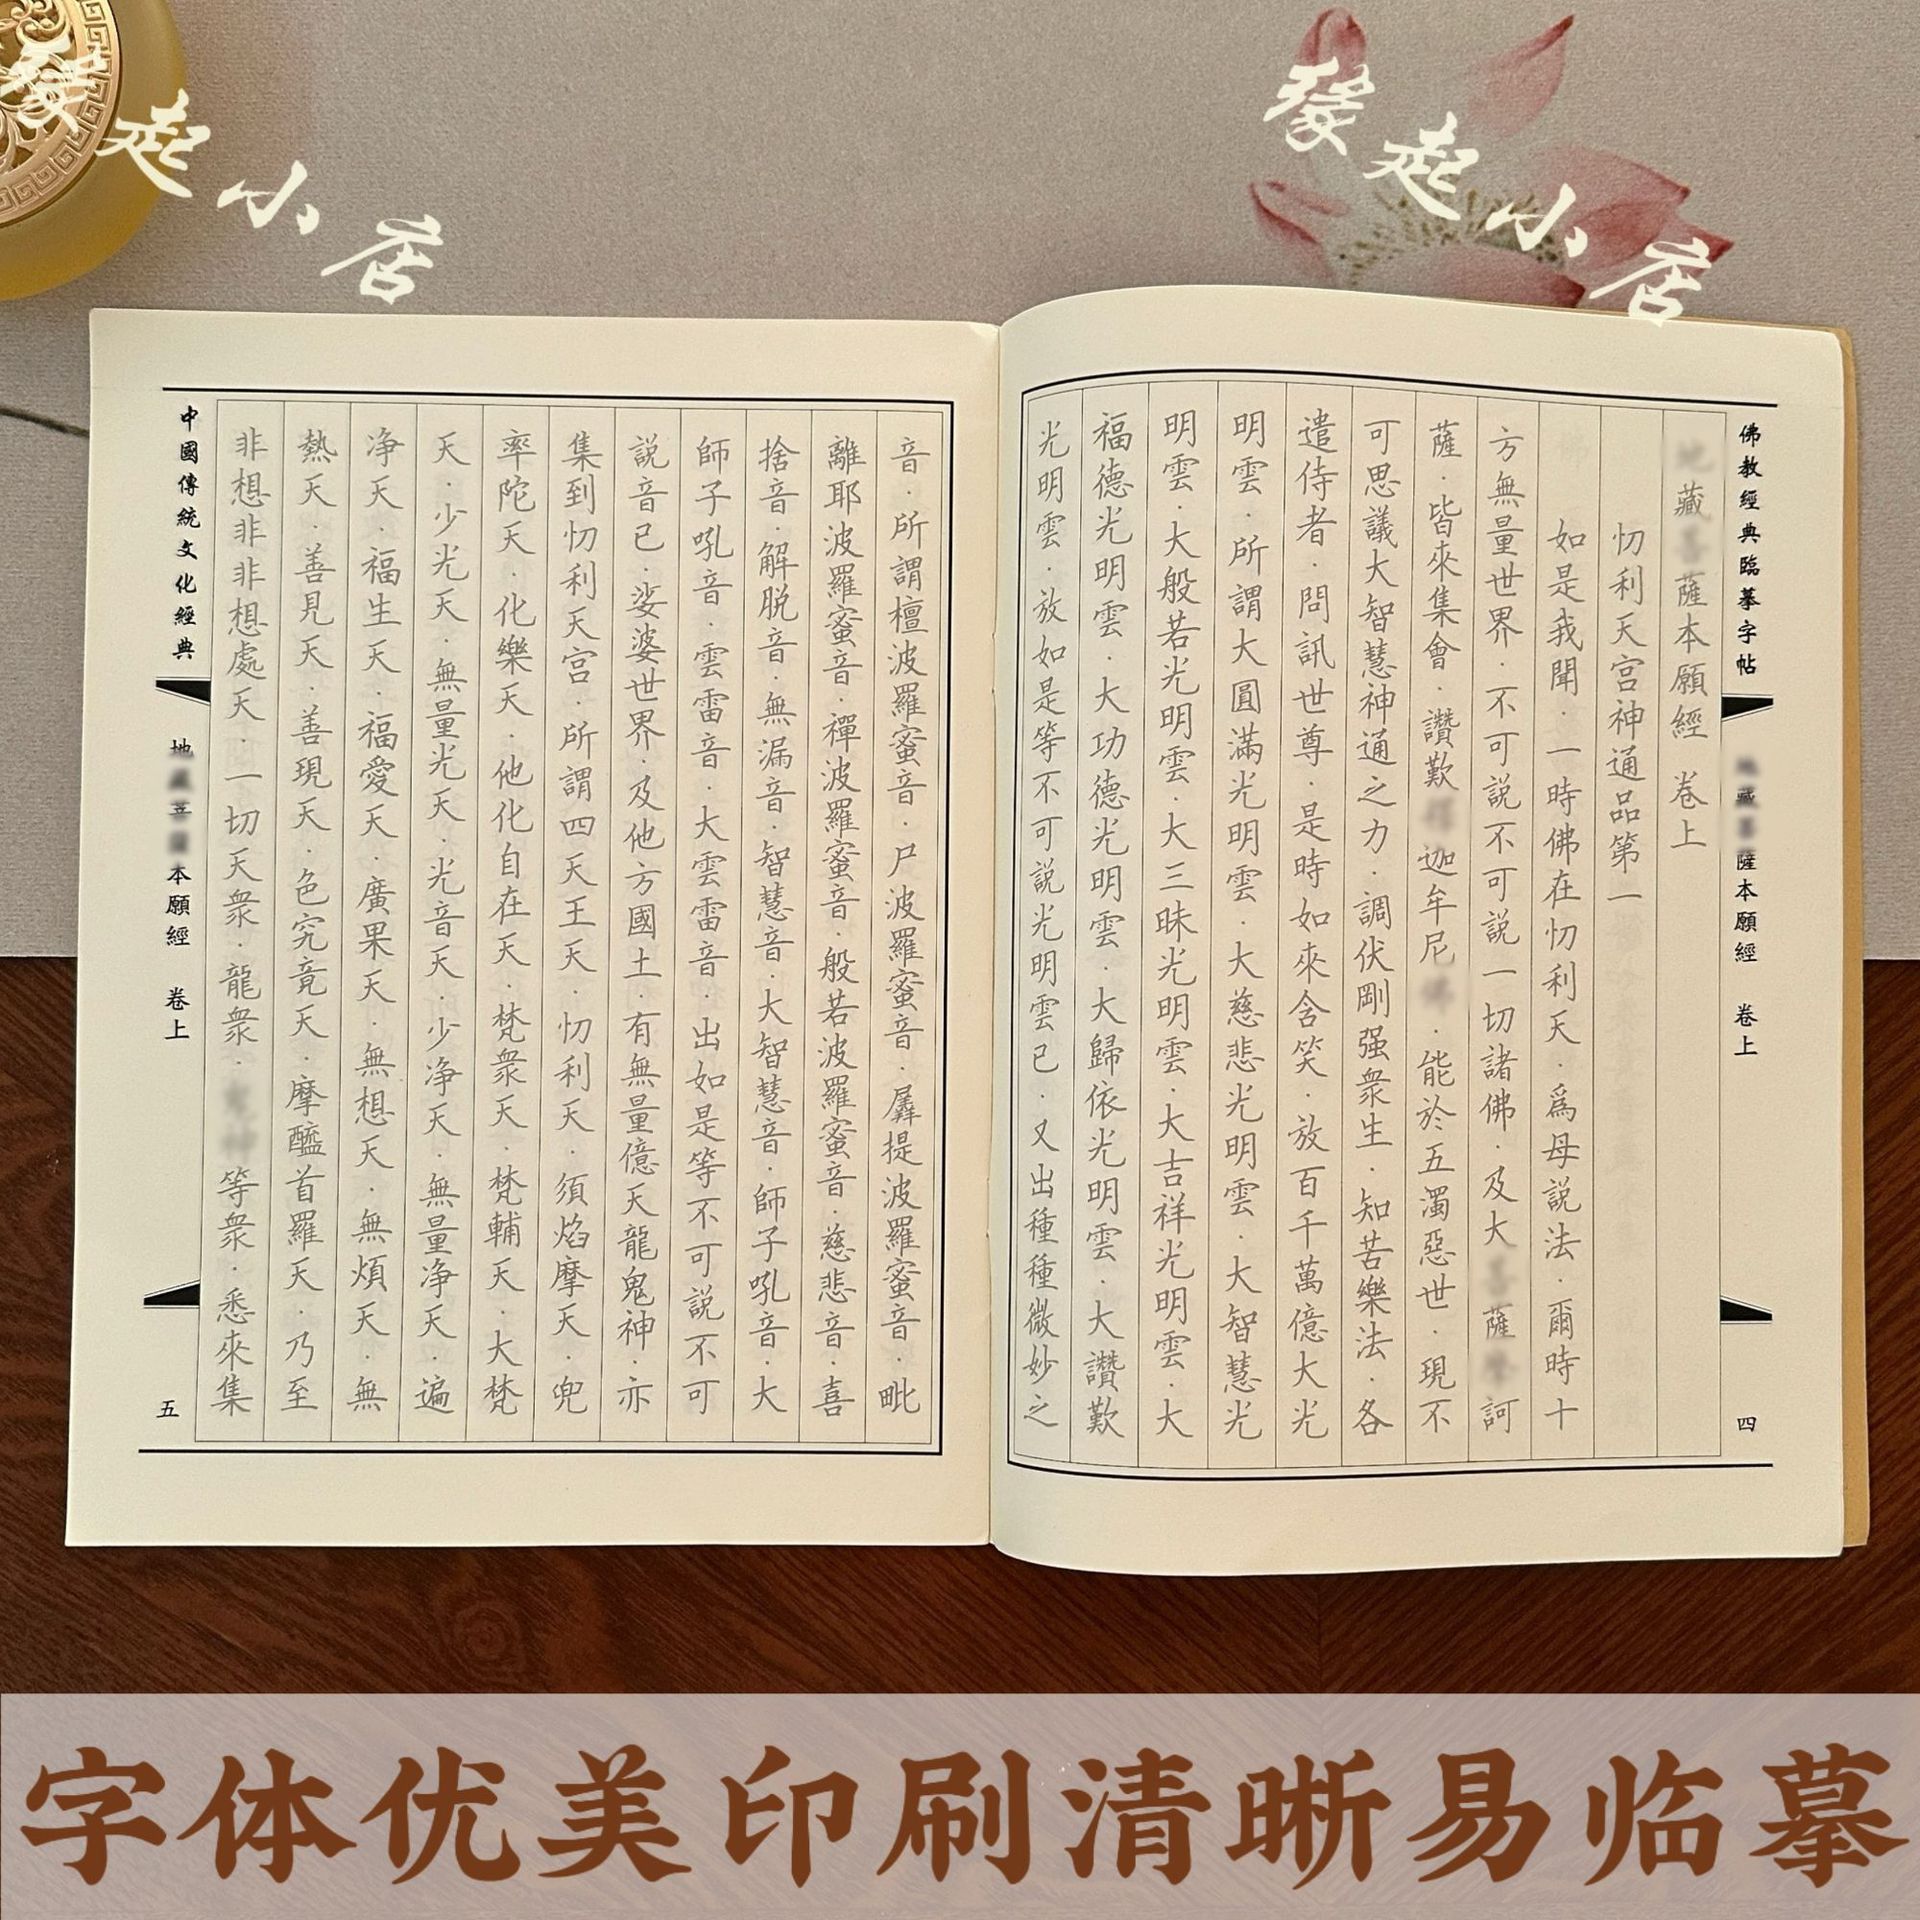 緣起小居
緣起小居
佛教經典臨摹字帖
藏
薩本願經
卷上
四
藏
薩本願經 卷上
忉利天宮神通品第一
如是我聞·一時佛在忉利天·爲母説法·爾時十
方無量世界·不可説不可説一切諸佛·及大
薩
訶
薩·皆來集會·讚歎
迦牟尼
·能於五濁惡世·現不
可思議大智慧神通之力·調伏剛强衆生·知苦樂法·各
遣侍者·問訊世尊·是時如來含笑·放百千萬億大光
明雲·所謂大圓滿光明雲·大慈悲光明雲·大智慧光
明雲·大般若光明雲·大三昧光明雲·大吉祥光明雲·大
福德光明雲·大功德光明雲·大歸依光明雲·大讚歎
光明雲·放如是等不可説光明雲已·又出種種微妙之
音·所謂檀波羅蜜音·尸波羅蜜音·羼提波羅蜜音·毗
離耶波羅蜜音·禪波羅蜜音·般若波羅蜜音·慈悲音·喜
捨音·解脱音·無漏音·智慧音·大智慧音·師子吼音·大
師子吼音·雲雷音·大雲雷音·出如是等不可説不可
説音已·娑婆世界·及他方國土·有無量億天龍鬼神·亦
集到忉利天宮·所謂四天王天·忉利天·須焰摩天·兜
率陀天·化樂天·他化自在天·梵衆天·梵輔天·大梵
天·少光天·無量光天·光音天·少净天·無量净天·遍
净天·福生天·福愛天·廣果天·無想天·無煩天·無
熱天·善見天·善現天·色究竟天·摩醯首羅天·乃至
非想非非想處天·一切天衆·龍衆·
等衆·悉來集
中國傳統文化經典
地藏
本願經
卷上
五
字体优美印刷清晰易临摹